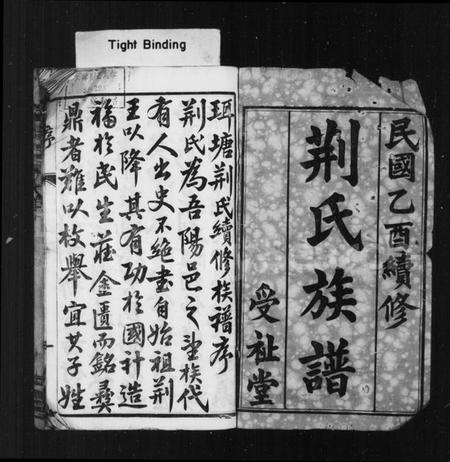 Tight Binding
民國乙酉續修
荆氏族譜
受祉堂
珥塘荆氏續修族譜序
荆氏為吾陽邑之望族代
有人出史不絕書自始祖荆
王以降其有功於國計造
福於民生莊金匱而銘彞
鼎者難以枚舉宜其子姓
序